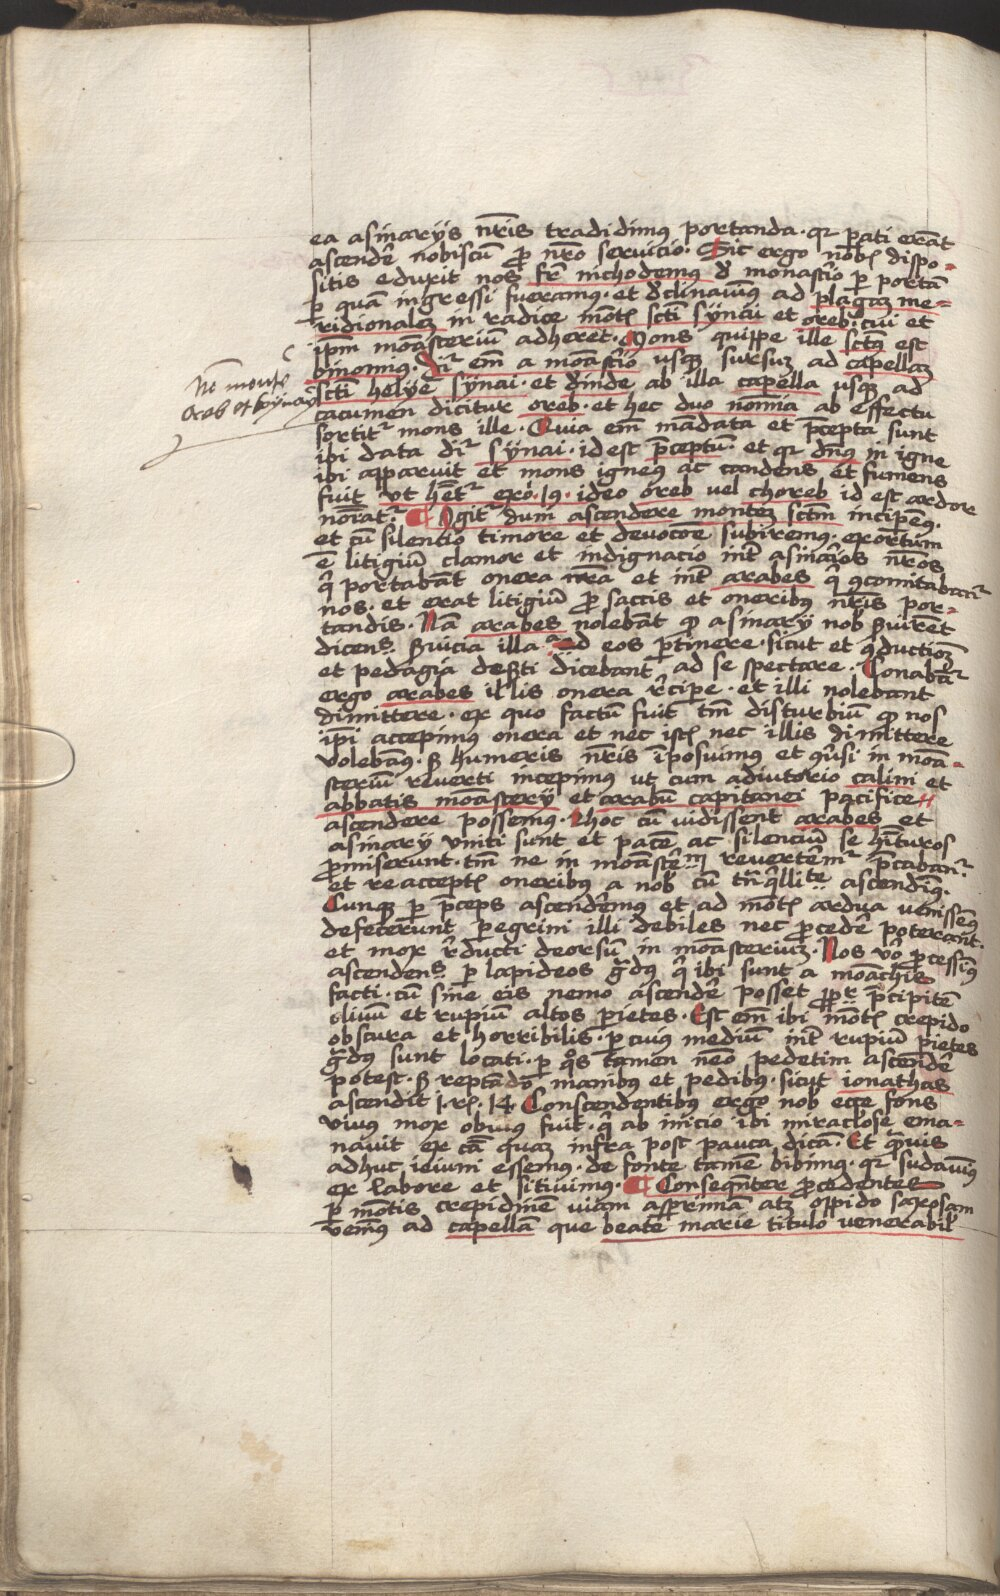 ea asinarijs nr̄is tradidimus portanda · qr̄ p̱ati erāt
ascendēr nobiscū p̱ nr̄o seruicio · Sic ergo nob̄ dispo=
sitis eduxit nos fr̄ nichodemus de monastr̄io per portā
per quā ingressi fueramus · et declinauimus ad plagaz me=
ridionalez in radice mōtꝭ sctī sÿnai et oreb · cui et
ip̄m monasteriū adheret · Mons quippe ille sctūs est
binomius · Dr̄ em̄ a moastr̄io usqꝫ sursuz ad capellaz
Nō monte
oreb et sÿnaÿ
sctī helÿe sÿnai · et deinde ab illa capella usqꝫ ad
cacumen dicitur oreb · et hec duo nomīa ab effectu
sortitr̄ mons ille · Quia em̄ mādata et p̄cepta sunt
ibi data dr̄ sÿnai · id est p̄ceptum · et qr̄ dn̄s in igne
ibi apparuit et mons igneus ac candens et fumens
fuit vt hētr̄ exo · 19 · ideo oreb vel choreb id est ardore
nōīatr̄ ¶ Igitr̄ dum ascendere montez sctm̄ incipem̄s
et cū silentio timore et deuocōe subiremus · exortum
ē litigiū clamor et indignacio int̄ asinarios nr̄os
q̄ portabāt onera nr̄a et int̄ arabes q̄ ꝯcomitabantr̄
nos · et erat litigiū p̱ saccis et oneribus nr̄is por=
tandis · Nā arabes nolebāt qd̄ asinarÿ nob̄ ẜuirent
dicens ẜuicia illa ad eos p̱tinere · sicut et ꝯductioēz
et pedagia deẜti dicebant ad se spectare · Conabār
ergo arabes illis onera recipe · et illi nolebant
dimittere · ex quo factū fuit tm̄ disturbiū qd̄ nos
ip̄i accepimus onera et nec istꝭ nec illis dimittere
volebams · ẜ humeris nr̄is īposuimus et quasi in moā=
steriū reuerti incepimus ut cum adiutorio calini et
abbatis moāsterÿ et arabū capitanei pacifice
ascendere possemus · Hoc cū vidissent arabes et
asinarÿ vniti sunt et pacē ac silenciū se hīturos
promiserunt · tm̄ ne in moastēm̄ reuertēmr̄ p̄cabanr̄
et reacceptꝭ oneribus a nob̄ cū tn̄qllite ascendims
Cunqꝫ per p̄ceps ascendemus et ad mōtꝭ ardua venissems
defecerunt peregrini illi debiles nec procedēr poterant ·
et mox r̄ducti deorsū in moāsterium · Nos vo processims
ascendens per lapideos gradus q̄ ibi sunt a moāchis
facti · cū sine eis nemo ascendēr posset ppr̄ p̄cipitē
cliuū et rupiū altos parietes · Est em̄ ibi mōtꝭ crepido
obscura et horribilis · per cuius mediū int̄ rupiū parietes
gradus sunt locati · per q̊s tamen nēo pedetim ascendēr
potest · ẜ reptādo manibus et pedibus · sicut ionathas
ascendit 1 · rꝭ · 14 Conscendentibus ergo nob̄ ecce fons
viuus mox obuius fuit · q̄ ab inicio ibi miraclose ema=
nauit ex cā quaz infra post pauca dicā · Et quis
adhuc ieiuni essemus · de fonte tamē bibimus · qr̄ sudauims
ex labore et sitiuimus · ¶ Conseqn̄ter procedentes
per mōtis crepidinē viam asperrimā atqꝫ oppido saxosam
venims ad capellā que beate marie titulo venerabil̄